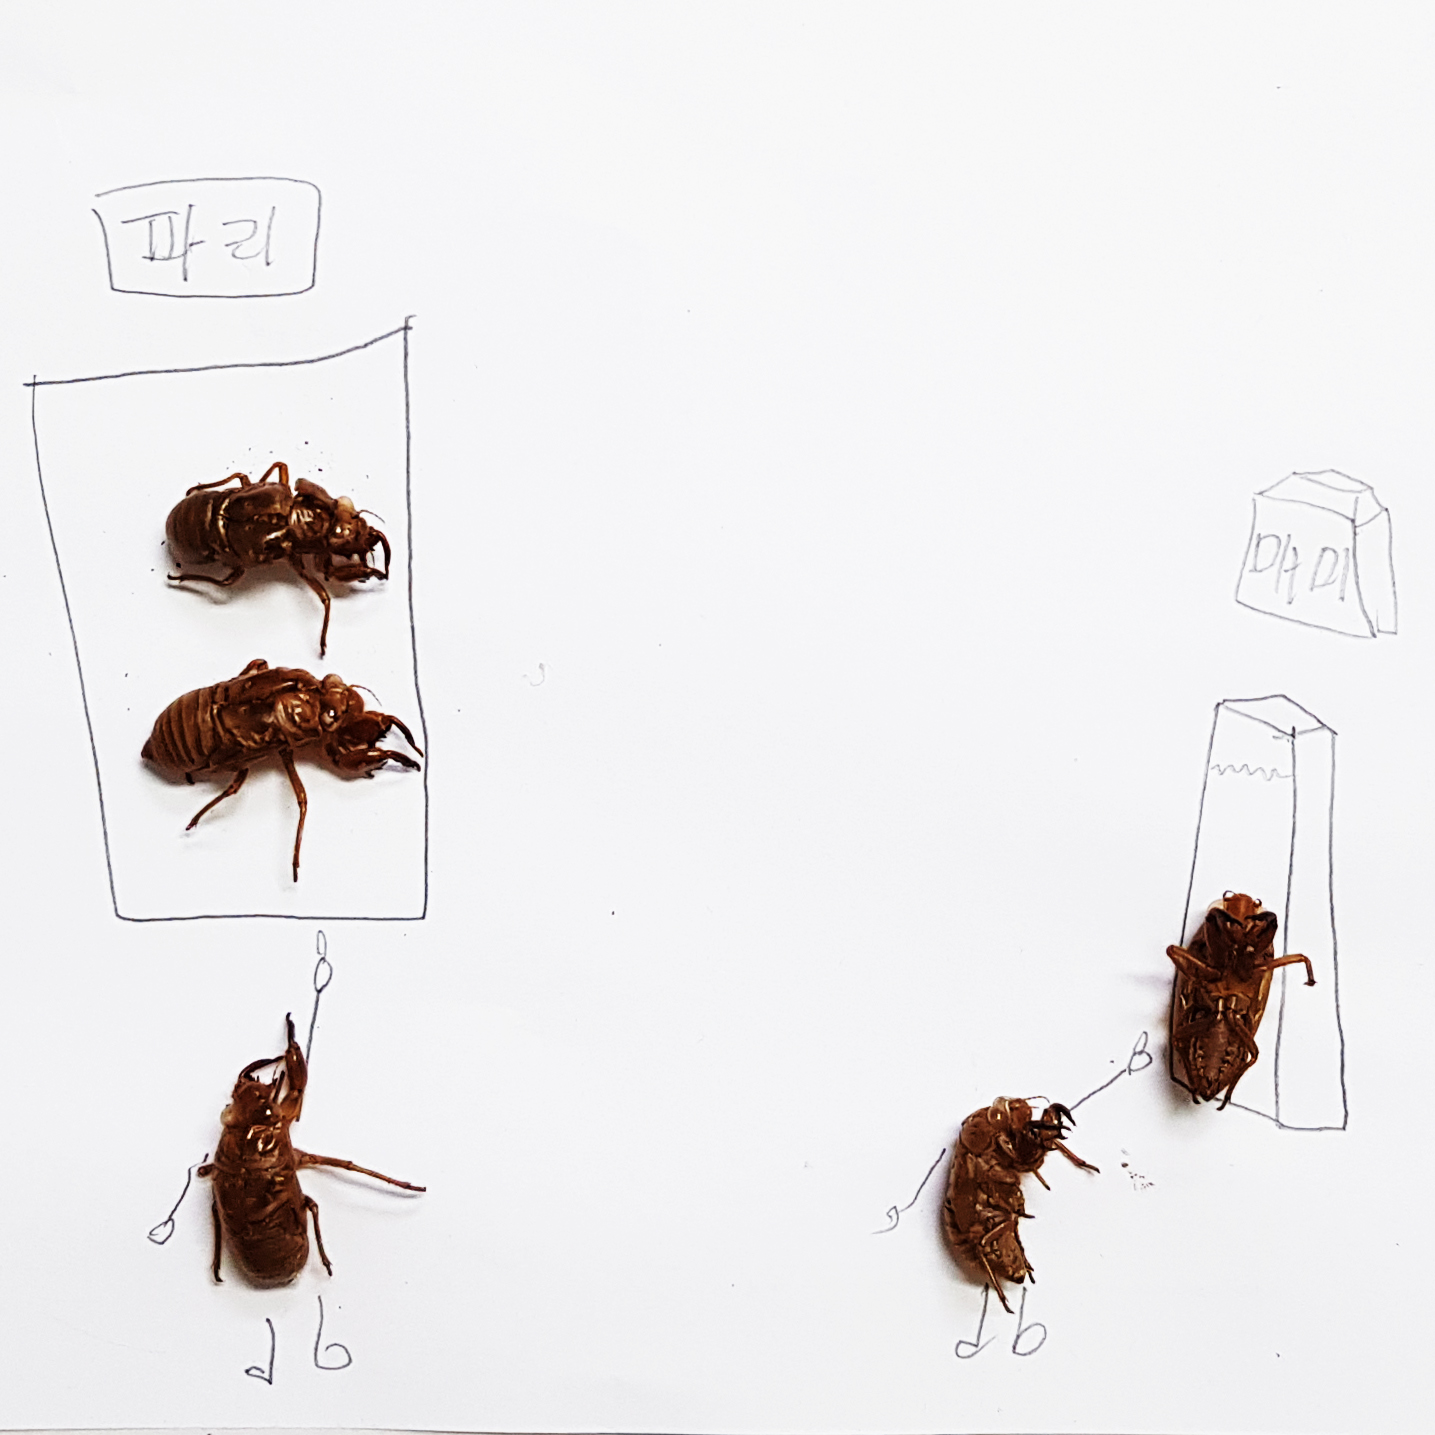 파리
매미